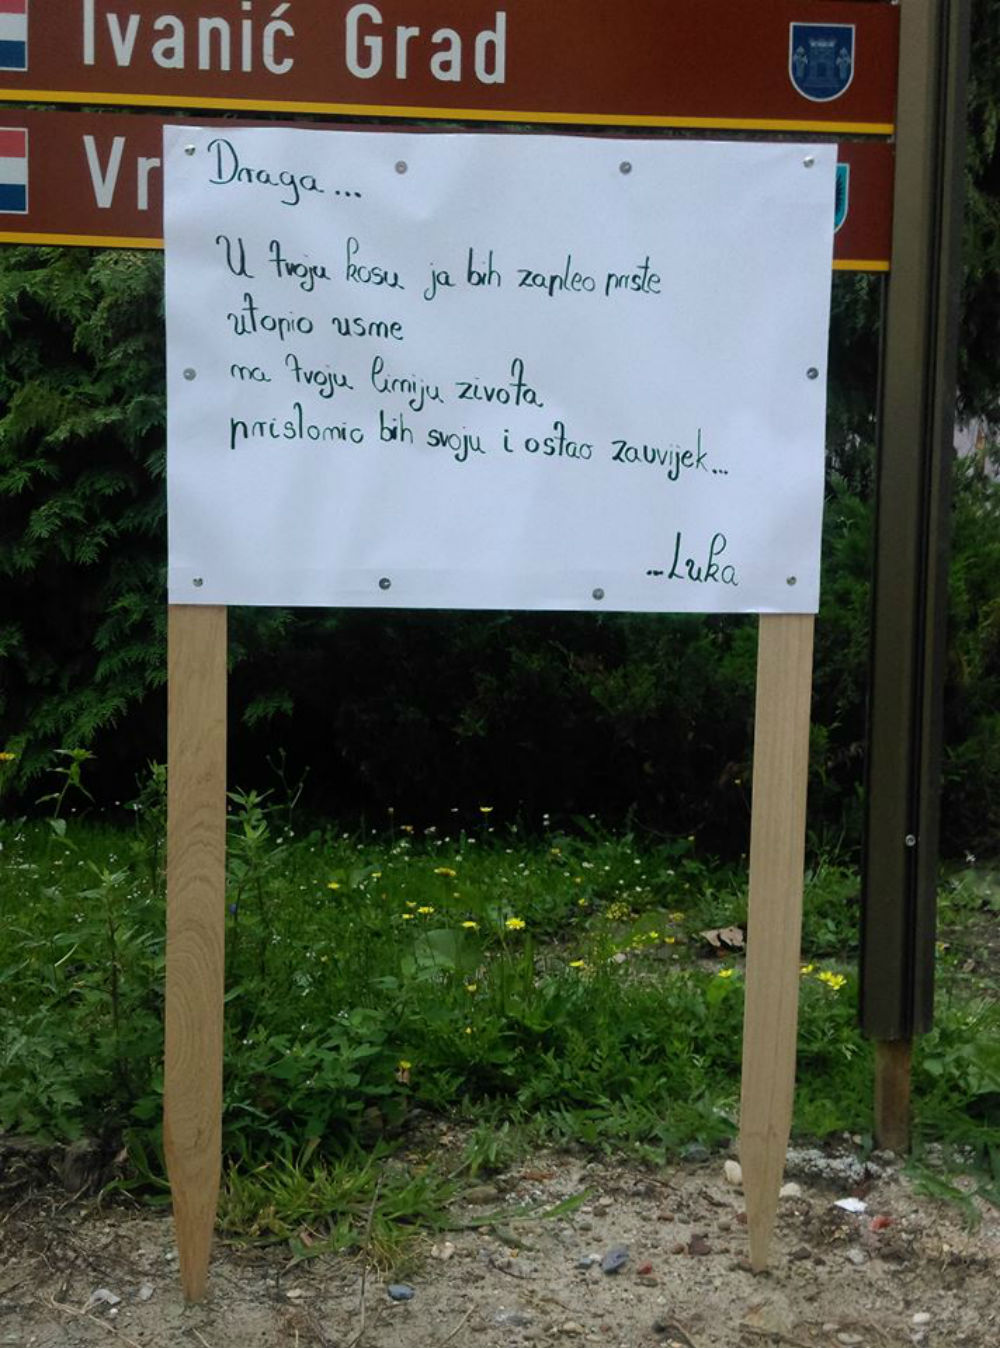 Ivanić Grad
Vr
Draga...
U tvoju kosu ja bih zapleo prste
utopio usme
na tvoju liniju zivota
prislonio bih svoju i ostao zauvijek...
...Luka